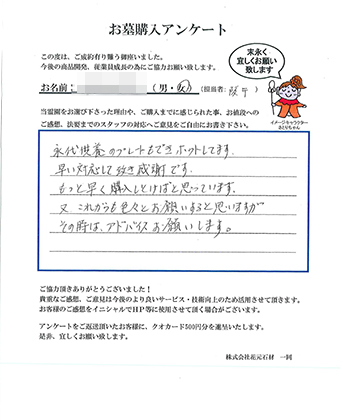 お墓購入アンケート
この度は、ご成約有り難う御座いました。
今後の商品開発、従業員成長の為にご協力お願い致します。
末永く
宜しくお願い
致します
お名前: (男・女) (担当者:
イメージキャラクター
さとりちゃん
当霊園をお選び下さった理由や、ご購入までに感じられた事、お値段への
ご感想、法要までのスタッフの対応へご意見をご自由にお書き下さい。
永代供養のプレートもできホットしてます。
早い対応して頂き感謝です。
もっと早く購入しとけばと思っています。
又、これからも色々とお願いすると思いますが
その時は、アドバイスお願いします。
ご協力頂きありがとうございました！
貴重なご感想、ご意見は今後のより良いサービス・技術向上のため活用させて頂きます。
お客様のご感想をイニシャルでHP等に使用させて頂く場合がございます。
アンケートをご返送頂いたお客様に、クオカード500円分を進呈いたします。
是非、宜しくお願い致します。
株式会社花元石材 一同